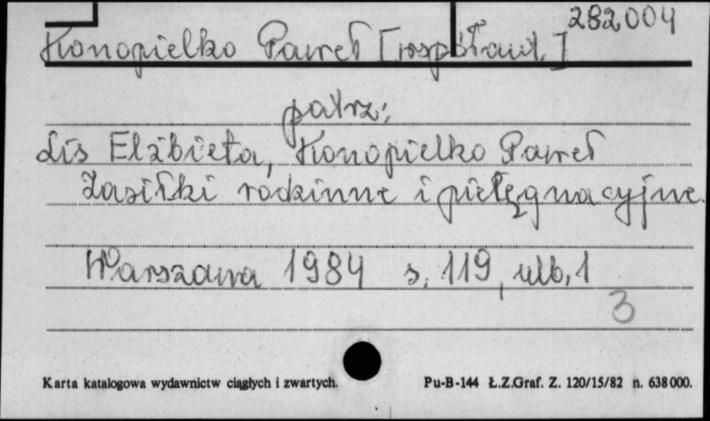 282004
Konopielko Paweł [współaut.]
patrz:
Lis Elżbieta, Konopielko Paweł
Zasiłki rodzinne i pielęgnacyjne.
Warszawa 1984 s. 119, ulb. 1
3
Karta katalogowa wydawnictw ciągłych i zwartych. Pu-B-144 Ł.Z.Graf. Z. 120/15/82 n. 638000.